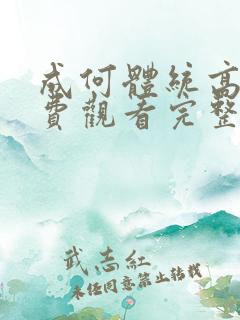 成何體統高
費觀看完整
武志紅
未經同意禁止轉載